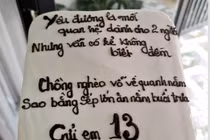 Yêu đương là mối
quan hệ dành cho 2 người
Nhưng vẫn có thể không
biết đếm
Chồng nghèo vỗ về quanh năm
Sao bằng Sếp lớn ăn nằm buổi trưa
Gửi em 13